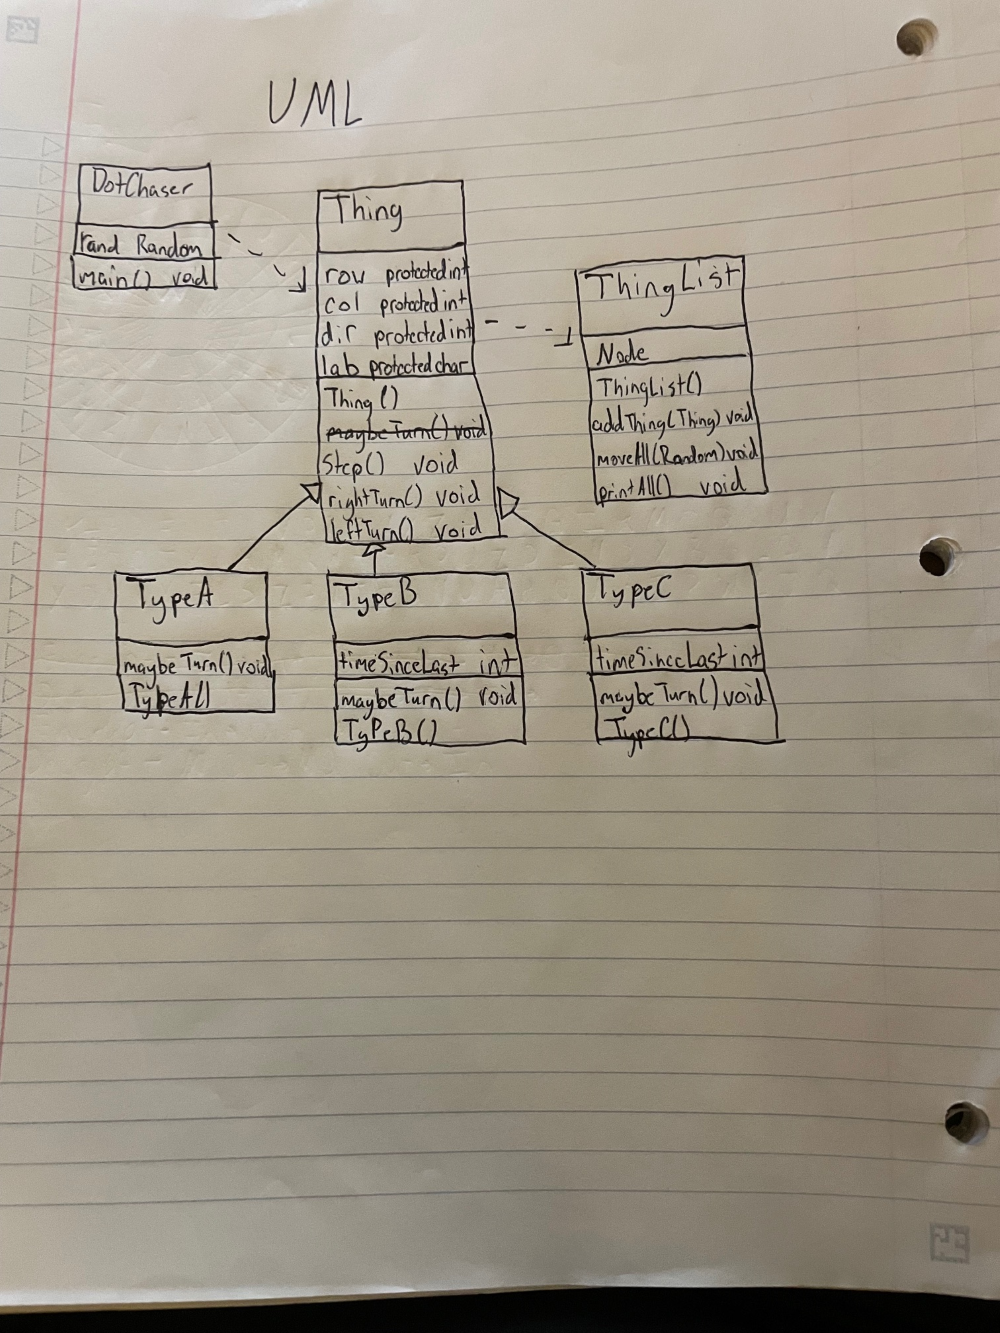 UML
DotChaser
rand Random
main() void
Thing
row protected int
col protected int
dir protected int
lab protected char
Thing()
maybeTurn() void
Step() void
rightTurn() void
leftTurn() void
ThingList
Node
ThingList()
addThing(Thing) void
moveAll(Random) void
printAll() void
TypeA
maybeTurn() void
TypeA()
TypeB
timeSinceLast int
maybeTurn() void
TyPeB()
TypeC
timeSinceLast int
maybeTurn() void
TypeC()